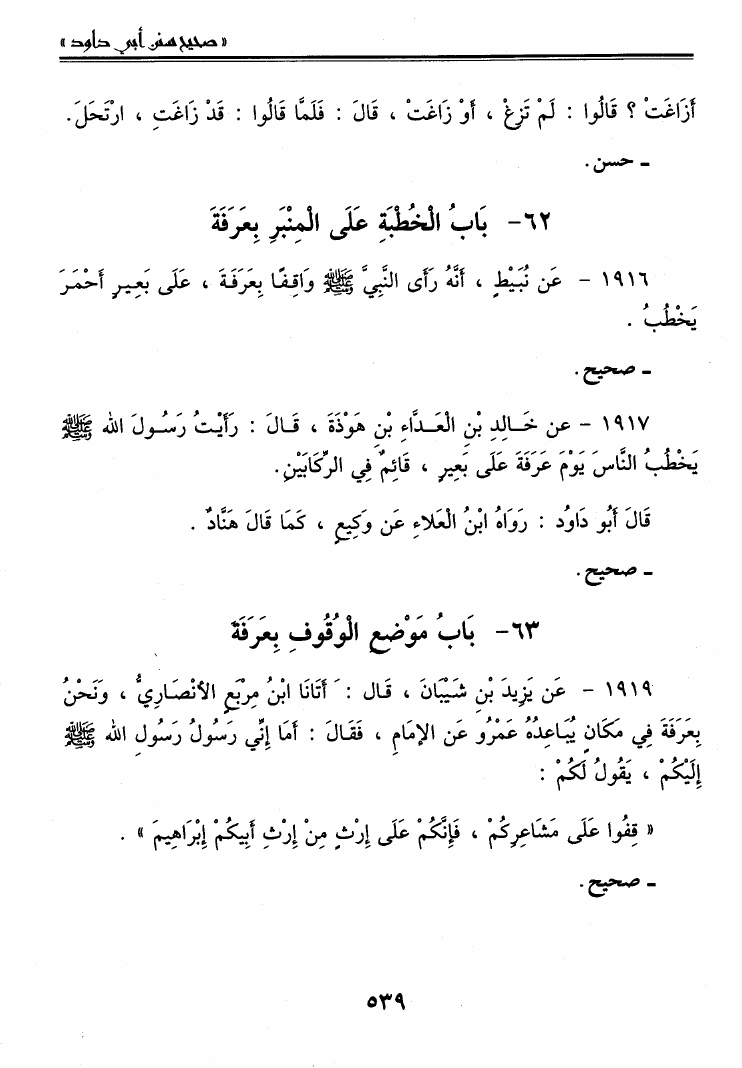 « صحيح سنن أبي داود »
أَزَاغَتْ ؟ قَالُوا : لَمْ تَزِغْ ، أَوْ زَاغَتْ ، قَالَ : فَلَمَّا قَالُوا : قَدْ زَاغَتِ ، ارْتَحَلَ.
ـ حسن.
٦٢- بَابُ الْخُطْبَةِ عَلَى الْمِنْبَرِ بِعَرَفَةَ
١٩١٦ - عَن نُبَيْطٍ ، أَنَّهُ رَأَى النَّبِيَّ ﷺ وَاقِفًا بِعَرَفَةَ ، عَلَى بَعِيرٍ أَحْمَرَ
يَخْطُبُ .
ـ صحيح.
١٩١٧ - عن خَالِدِ بْنِ الْعَدَّاءِ بْنِ هَوْذَةَ ، قَالَ : رَأَيْتُ رَسُولَ الله ﷺ
يَخْطُبُ النَّاسَ يَوْمَ عَرَفَةَ عَلَى بَعِيرٍ ، قَائِمٌ فِي الرِّكَابَيْنِ.
قَالَ أَبُو دَاوُد : رَوَاهُ ابْنُ الْعَلاءِ عَن وَكِيعٍ ، كَمَا قَالَ هَنَّادٌ .
ـ صحيح.
٦٣- بَابُ مَوْضِعِ الْوُقُوفِ بِعَرَفَةَ
١٩١٩ - عَن يَزِيدَ بْنِ شَيْبَانَ ، قَال : أَتَانَا ابْنُ مِرْبَعٍ الأنْصَارِيُّ ، وَنَحْنُ
بِعَرَفَةَ فِي مَكَانٍ يُبَاعِدُهُ عَمْرُو عَنِ الإمَامِ ، فَقَالَ : أَمَا إِنِّي رَسُولُ رَسُولِ الله ﷺ
إِلَيْكُمْ ، يَقُولُ لَكُمْ :
« قِفُوا عَلَى مَشَاعِرِكُمْ ، فَإِنَّكُمْ عَلَى إِرْثٍ مِنْ إِرْثِ أَبِيكُمْ إِبْرَاهِيمَ » .
ـ صحيح.
٥٣٩